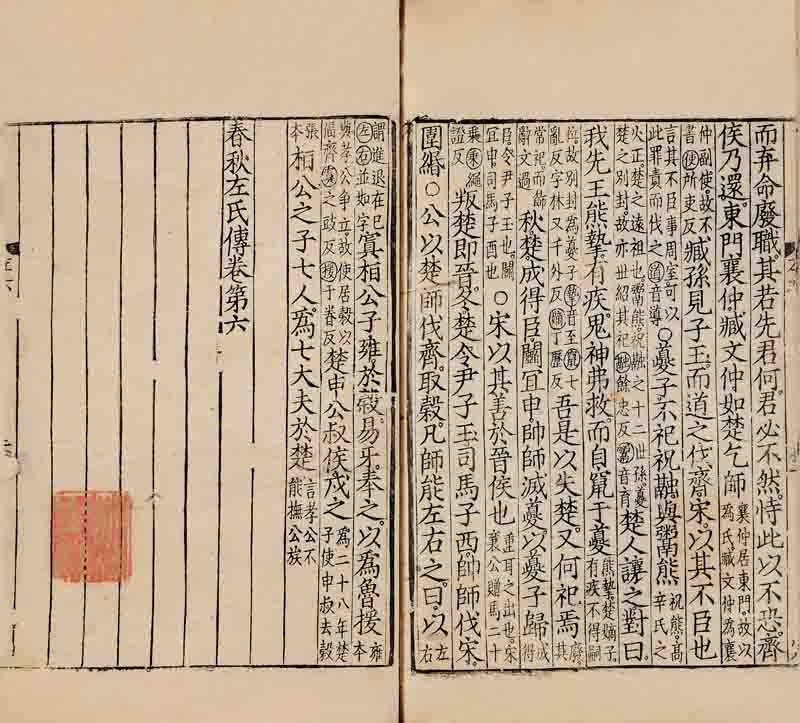 而弃命廢職。其若先君何。君必不然。恃此以不恐。齊
侯乃還。東門襄仲臧文仲如楚乞師襄仲居東門。故以為氏。臧文仲為襄
仲副使。故不書。使所吏反臧孫見子玉。而道之伐齊宋。以其不臣也
言其不臣事周室。可以此罪責而伐之。道音導○夔子不祀祝融與鬻熊祝融。高辛氏之
火正。楚之遠祖也。鬻熊。祝融之十二世孫。夔楚之別封。故亦世紹其祀。融餘忠反。鬻音育楚人讓之。對曰。
我先王熊摯有疾。鬼神弗赦。而自竄于夔熊摯楚嫡子。有疾不得嗣
位。故別封為夔子。摯音至。竄七亂反。字林又千外反。嫡丁歷反吾是以失楚。又何祀焉廢其
常祀而飾辭文過秋楚成得臣鬬宜申帥師滅夔。以夔子歸成得
臣。令尹子玉也。鬬宜申。司馬子西也○宋以其善於晉侯也重耳之出也。宋襄公贈馬二十
乘。乘繩證反叛楚即晉。冬楚令尹子玉司馬子西。帥師伐宋。
圍緡○公以楚師伐齊。取穀。凡師能左右之。曰以左右
謂進退在己。左右並如字寘桓公子雍於穀。易牙奉之。以爲魯援雍本
與孝公爭立。故使居穀以偪齊。寘之豉反。援于眷反楚申公叔侯戍之為二十八年楚子使申叔去穀
張本桓公之子七人。爲七大夫於楚言孝公不能撫公族
春秋左氏傳卷第六